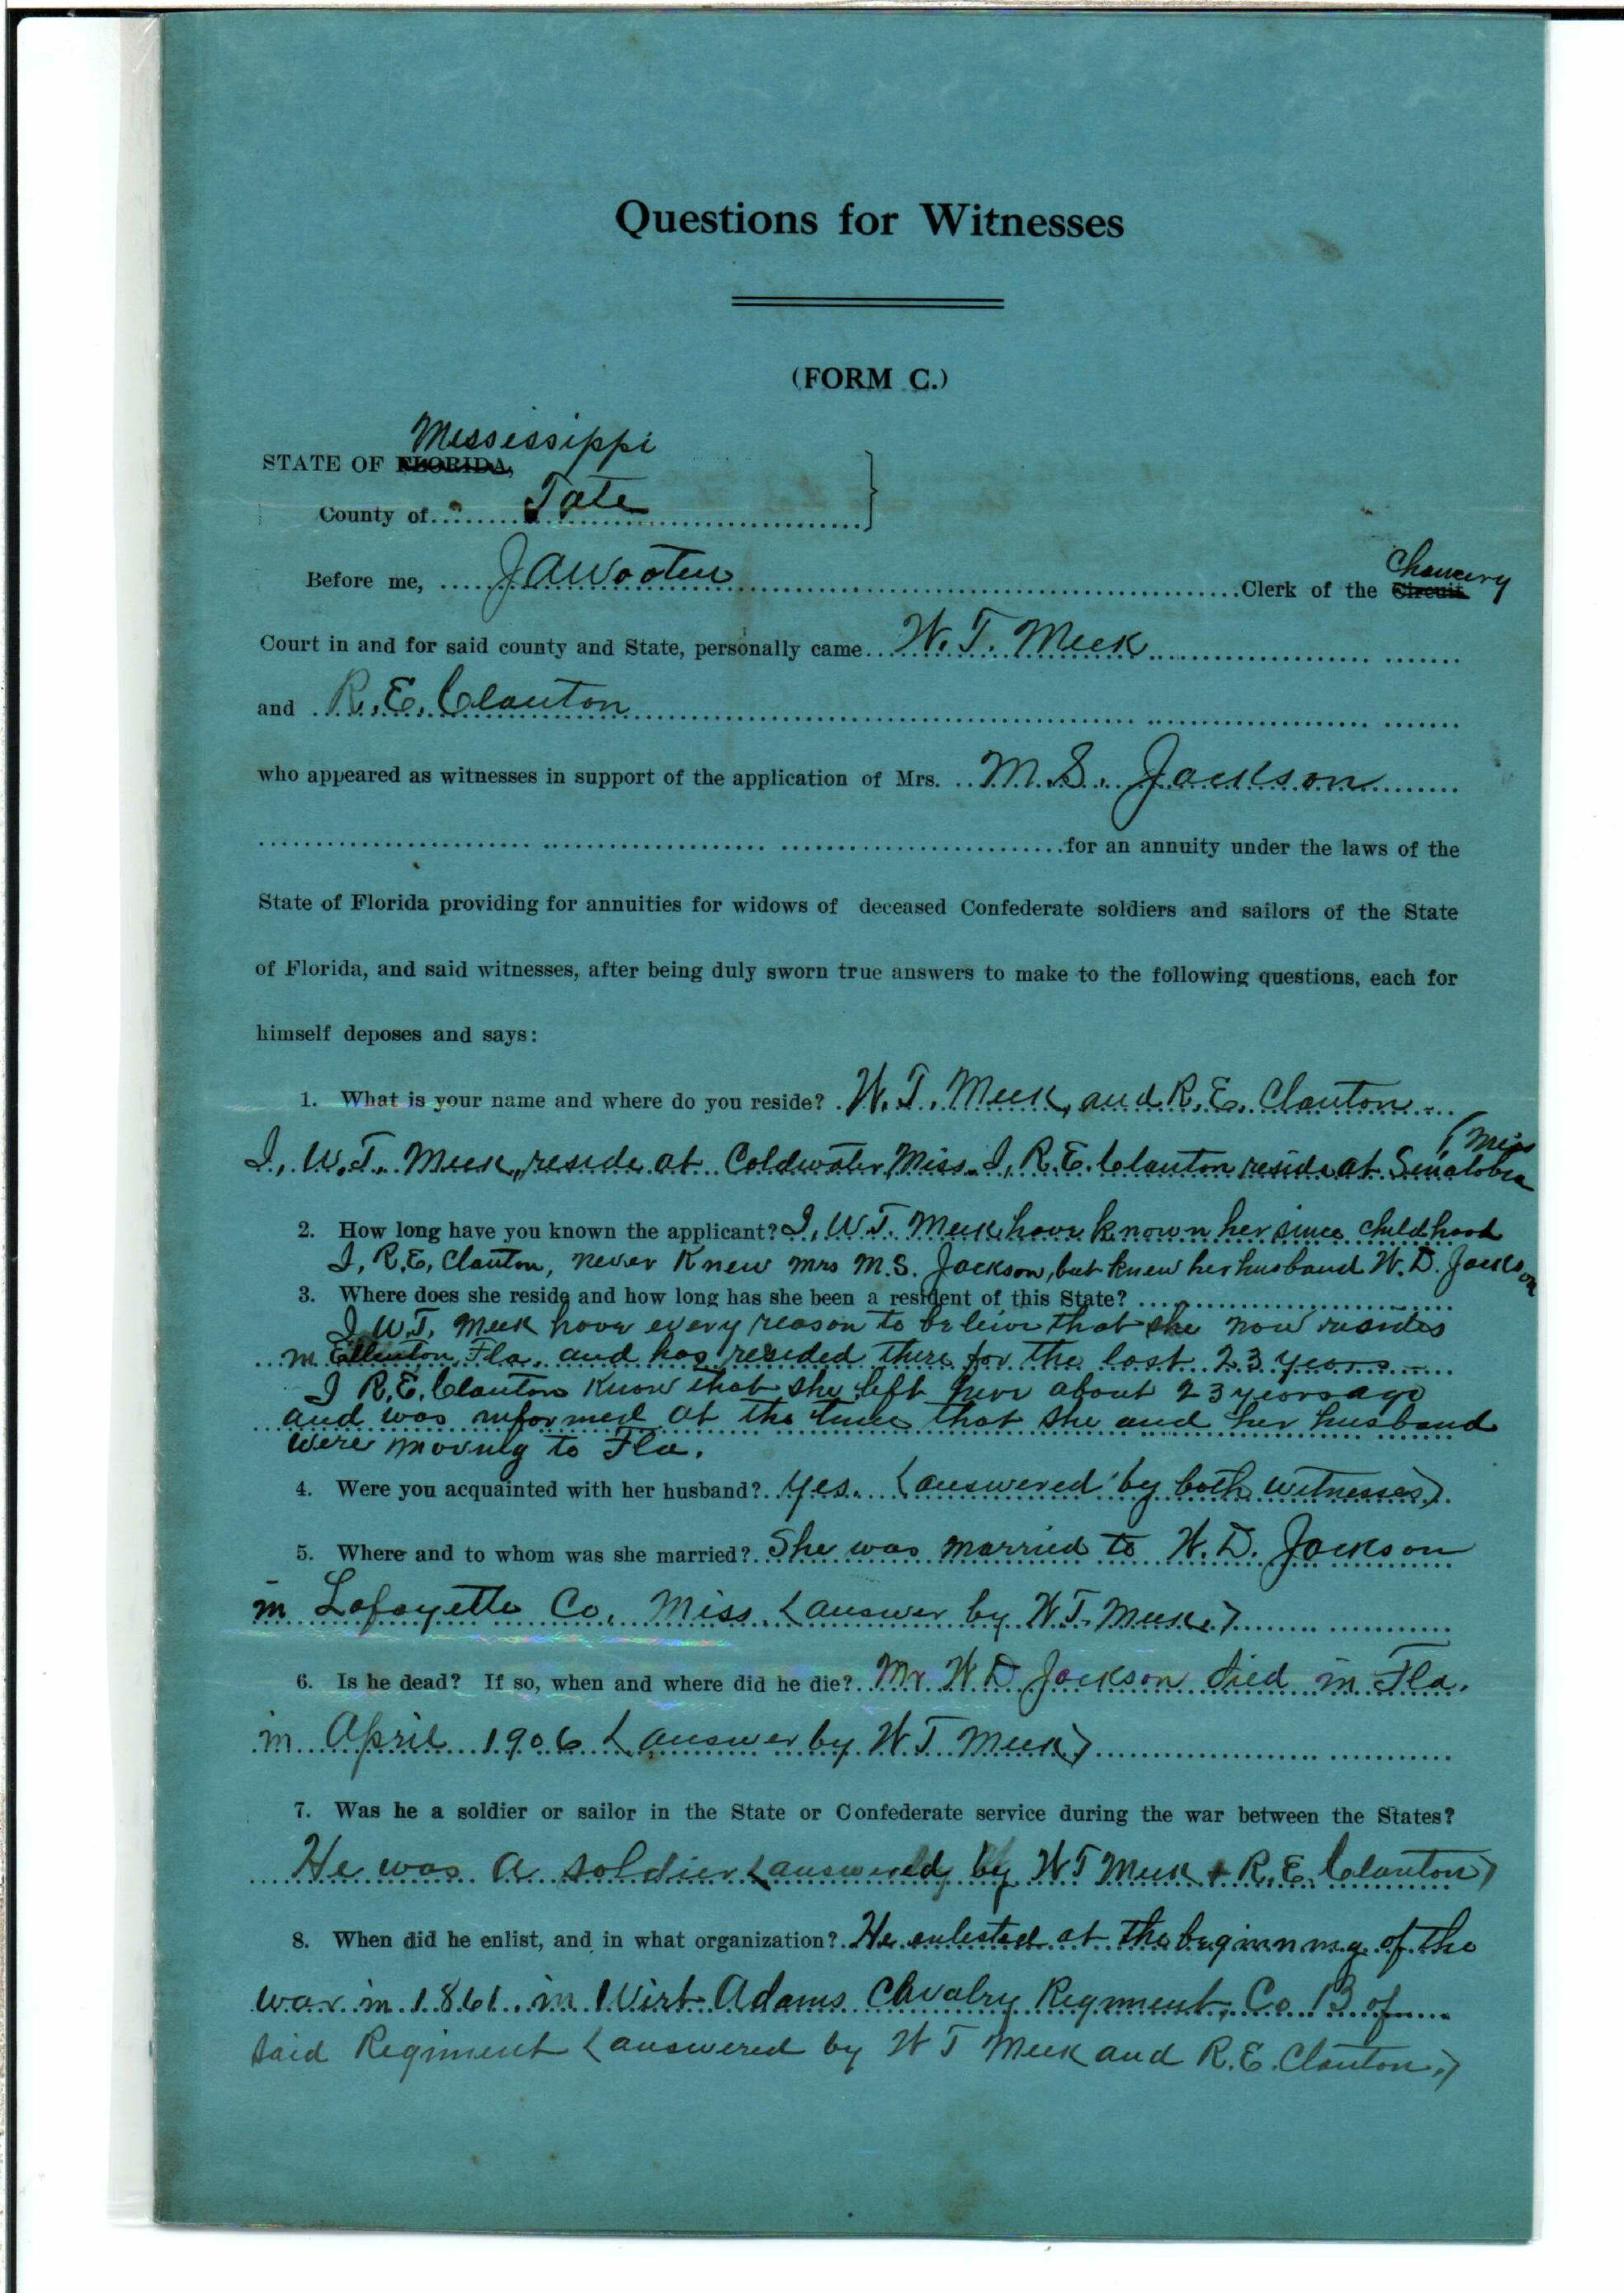 Questions for Witnesses
(FORM C.)
Mississippi
STATE OF FLORIDA,
County of Tate
Before me, J A Wooten Clerk of the Circuit Chancery
Court in and for said county and State, personally came W. T. Meek
and R. E. Clanton
who appeared as witnesses in support of the application of Mrs. M. S. Jackson
for an annuity under the laws of the
State of Florida providing for annuities for widows of deceased Confederate soldiers and sailors of the State
of Florida, and said witnesses, after being duly sworn true answers to make to the following questions, each for
himself deposes and says:
1. What is your name and where do you reside? W. T. Meek, and R. E. Clanton
I, W. T. Meek, reside at Coldwater, Miss. I, R. E. Clanton reside at Senatobia (Miss
2. How long have you known the applicant? I, W T. Meek have known her since childhood
I, R. E, Clanton, never knew Mrs M. S. Jackson, but knew her husband W. D. Jackson
3. Where does she reside and how long has she been a resident of this State?
I W. T. Meek have every reason to beleive that she now resides
in Ellenton, Fla. and has resided there for the last 23 years
I R. E. Clanton know that she left here about 23 years ago
and was informed at the time that she and her husband
were moving to Fla.
4. Were you acquainted with her husband? Yes. (answered by both witnesses)
5. Where and to whom was she married? She was married to W. D. Jackson
in Lafayette Co, Miss. (answer by W T. Meek)
6. Is he dead? If so, when and where did he die? Mr. W D Jackson died in Fla.
in April 1906 (answer by W T Meek)
7. Was he a soldier or sailor in the State or Confederate service during the war between the States?
He was a soldier (answered by W T Meek + R. E. Clanton)
8. When did he enlist, and in what organization? He enlisted at the beginning of the
war in 1861 in Wirt Adams Cavalry Regiment, Co B of
said Regiment (answered by W T Meek and R. E. Clanton.)